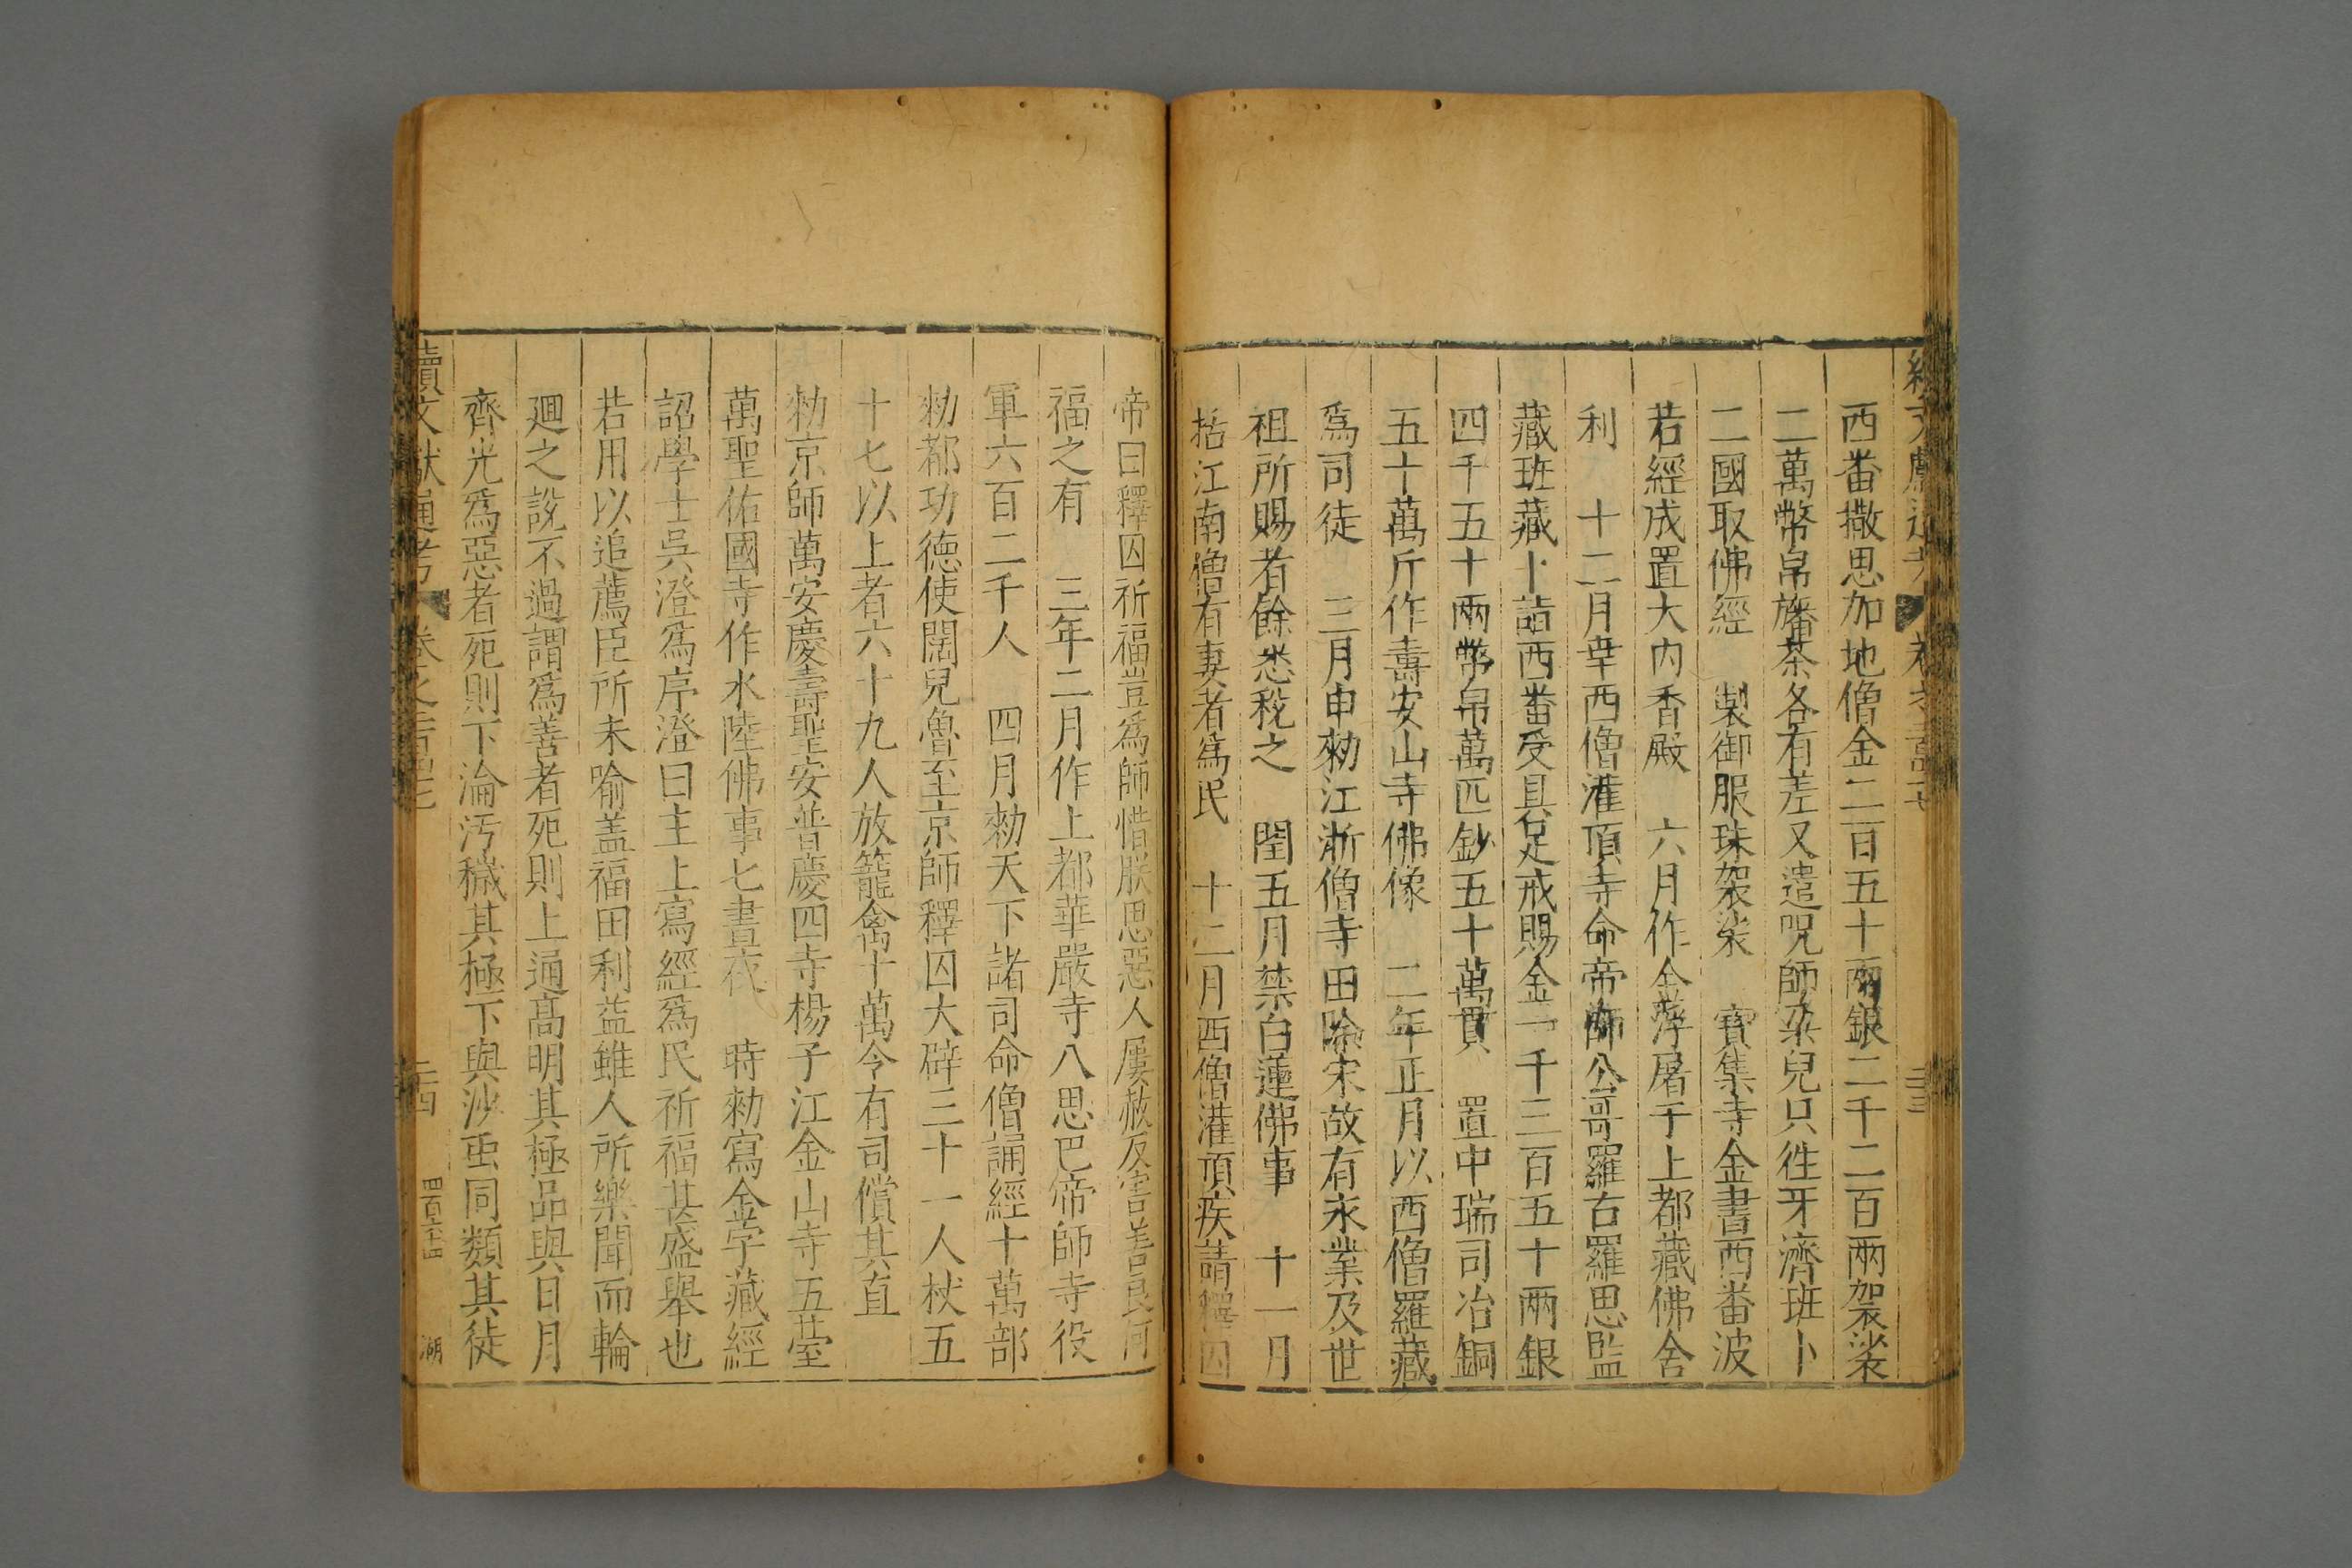 西番撒思加地僧金二百五十兩銀二千二百兩袈裟
二萬幣帛旛茶各有差又遣咒師朶兒只徃牙濟班卜
二國取佛經　製御服珠袈裟　寶集寺金書西番波
若經成置大内香殿　六月作金浮屠于上都藏佛舍
利　十二月幸西僧灌頂寺命帝師公哥羅古羅思監
藏班藏卜詣西番受具足戒賜金一千三百五十兩銀
四千五十兩幣帛萬匹鈔五十萬貫　置中瑞司冶銅
五十萬斤作壽安山寺佛像　二年正月以西僧羅藏
爲司徒　三月申勑江浙僧寺田除宋故有永業及世
祖所賜者餘悉稅之　閏五月禁白蓮佛事　十一月
括江南僧有妻者爲民　十二月西僧灌頂疾請釋囚
帝曰釋囚祈福豈爲師惜朕思惡人屢赦反害善良何
福之有　三年二月作上都華嚴寺八思巴帝師寺役
軍六百二千人　四月勑天下諸司命僧誦經十萬部
勑都功德使闊兒魯至京師釋囚大辟三十一人杖五
十七以上者六十九人放籠禽十萬令有司償其直
勑京師萬安慶壽聖安普慶四寺楊子江金山寺五臺
萬聖佑國寺作水陸佛事七晝夜　時勑寫金字藏經
詔學士吳澄爲序澄曰主上寫經爲民祈福甚盛舉也
若用以追薦臣所未喻盖福田利益雖人所樂聞而輪
廻之說不過謂爲善者死則上通高明其極品與日月
齊光爲惡者死則下淪汚穢其極下與沙䖝同類其徒
續文獻通考　卷之
二四
四百六十四
湖